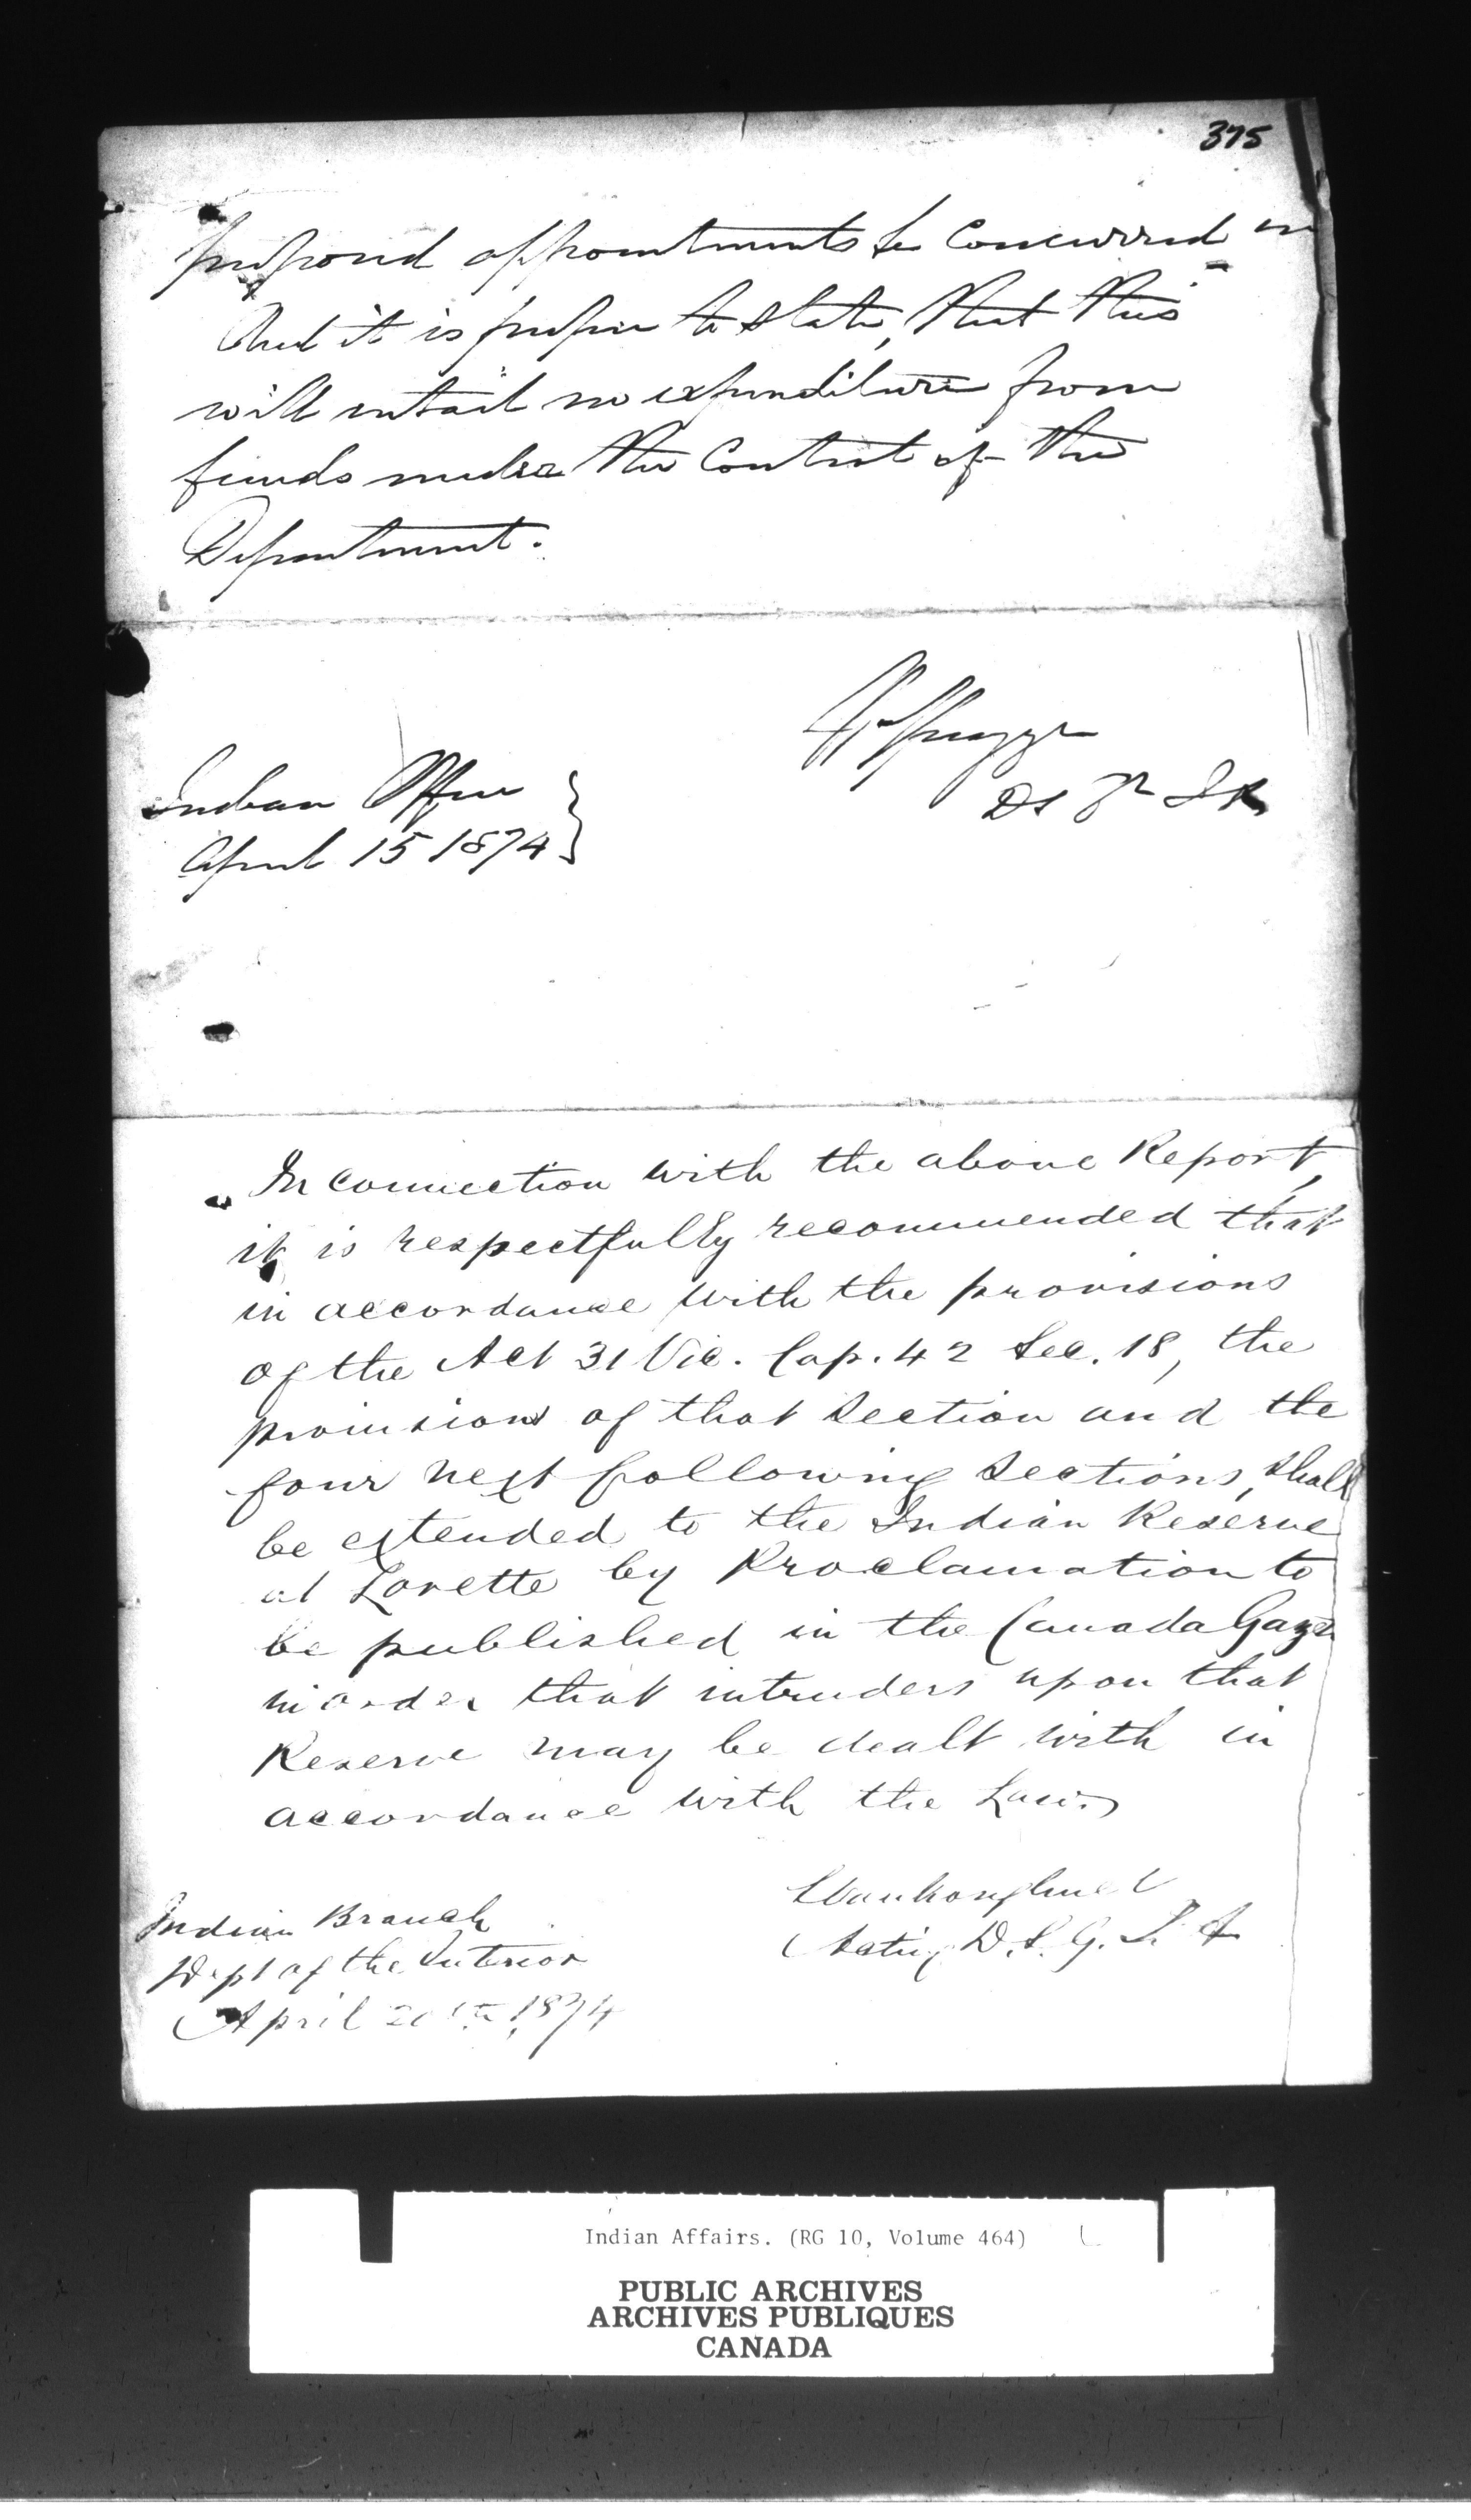 375
proposed appointments be concurred in
And it is proper to state, that this
will entail no expenditure from
funds under the Control of the
Department.
Indian Office
April 15 1874
In connection with the above Report,
it is respectfully recommended that
in accordance with the provisions
of the Act 31 Vic. Cap. 42 Sec. 18, the
provisions of that Section and the
four next following Sections, shall
be extended to the Indian Reserve
at Lorette by Proclamation to
be published in the Canada Gaze
in order that intruders upon that
Reserve may be dealt with in
accordance with the Law.
LVankoughnet
Acting D.S.G. I. A
Indian Branch
Dept of the Interior
April 1874
Indian Affairs. (RG 10, Volume 464)
PUBLIC ARCHIVES
ARCHIVES PUBLIQUES
CANADA